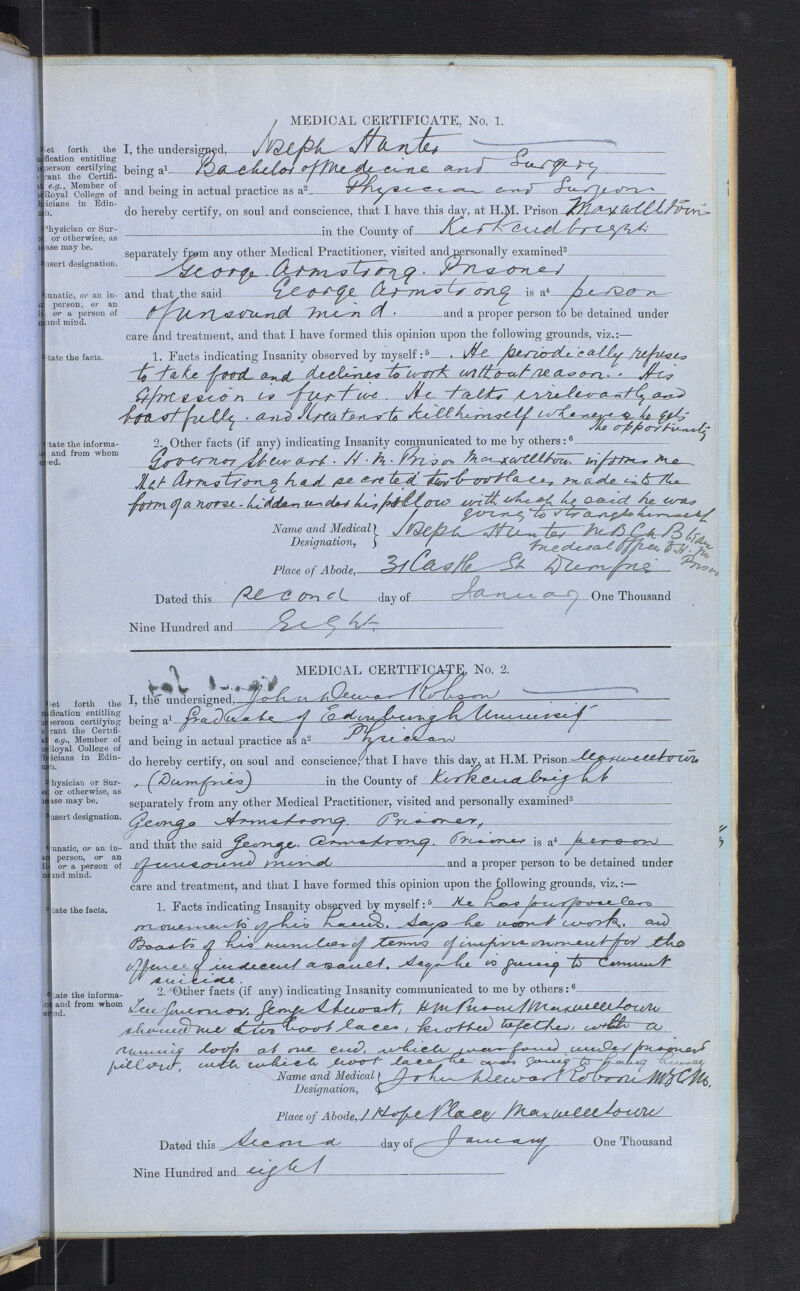 MEDICAL CERTIFICATE, No. 1.
I, the undersigned, Joseph Hunter
being a¹ Bachelor of Medicine and Surgery
and being in actual practice as a² Physician and Surgeon
do hereby certify, on soul and conscience, that I have this day, at H.M. Prison Maxwelltown
in the County of Kirkcudbright
separately from any other Medical Practitioner, visited and personally examined³
George Armstrong. Prisoner
and that the said George Armstrong is a⁴ person
of unsound mind. and a proper person to be detained under
care and treatment, and that I have formed this opinion upon the following grounds, viz.:—
1. Facts indicating Insanity observed by myself:⁵ He periodically refuses
to take food and declines to work without reason. His
expression is furtive. He talks irrelevantly and
boastfully. and threatens to kill himself whenever he gets
the opportunity
2. Other facts (if any) indicating Insanity communicated to me by others:⁶
Governor Stewart. H. M. Prison Maxwelltown informs me
that Armstrong had secreted two bootlaces made into the
form of a noose - hidden under his pillow with which he said he was
going to strangle himself
Name and Medical Designation, Joseph Hunter M B Ch B Edin
Medical Officer to H. M. Prison
Place of Abode, 31 Castle St Dumfries
Dated this second day of January One Thousand
Nine Hundred and Eight
et forth the
ification entitling
person certifying
rant the Certifi-
e.g., Member of
Royal College of
icians in Edin-
h.
Physician or Sur-
, or otherwise, as
ase may be.
nsert designation.
unatic, or an in-
person, or an
or a person of
und mind.
tate the facts.
tate the informa-
and from whom
ved.
MEDICAL CERTIFICATE, No. 2.
I, the undersigned, John Dewar Robson
being a¹ Graduate of Edinburgh University
and being in actual practice as a² Physician
do hereby certify, on soul and conscience, that I have this day, at H.M. Prison Maxwelltown
(Dumfries) in the County of Kirkcudbright
separately from any other Medical Practitioner, visited and personally examined³
George Armstrong. Prisoner,
and that the said George Armstrong. Prisoner is a⁴ person
of unsound mind and a proper person to be detained under
care and treatment, and that I have formed this opinion upon the following grounds, viz.:—
1. Facts indicating Insanity observed by myself:⁵ He has purposeless
movements of his hands. Says he wont work. and
Boasts of his number of terms of imprisonment for the
offence of indecent assault. Says he is going to commit
suicide.
2. Other facts (if any) indicating Insanity communicated to me by others:⁶
The Governor, George Stewart, HM Prison Maxwelltown
showed me two boot laces, knotted together with a
running loop at one end, which was found under prisoners
pillow, with which boot lace he was going to hang himself
Name and Medical Designation, John Dewar Robson M.B. C.M.
Place of Abode, 1 Hope Place Maxwelltown
Dated this Second day of January One Thousand
Nine Hundred and eight
et forth the
ification entitling
person certifying
rant the Certifi-
e.g., Member of
Royal College of
icians in Edin-
h.
hysician or Sur-
or otherwise, as
ase may be.
nsert designation.
unatic, or an in-
person, or an
or a person of
und mind.
tate the facts.
ate the informa-
and from whom
ed.